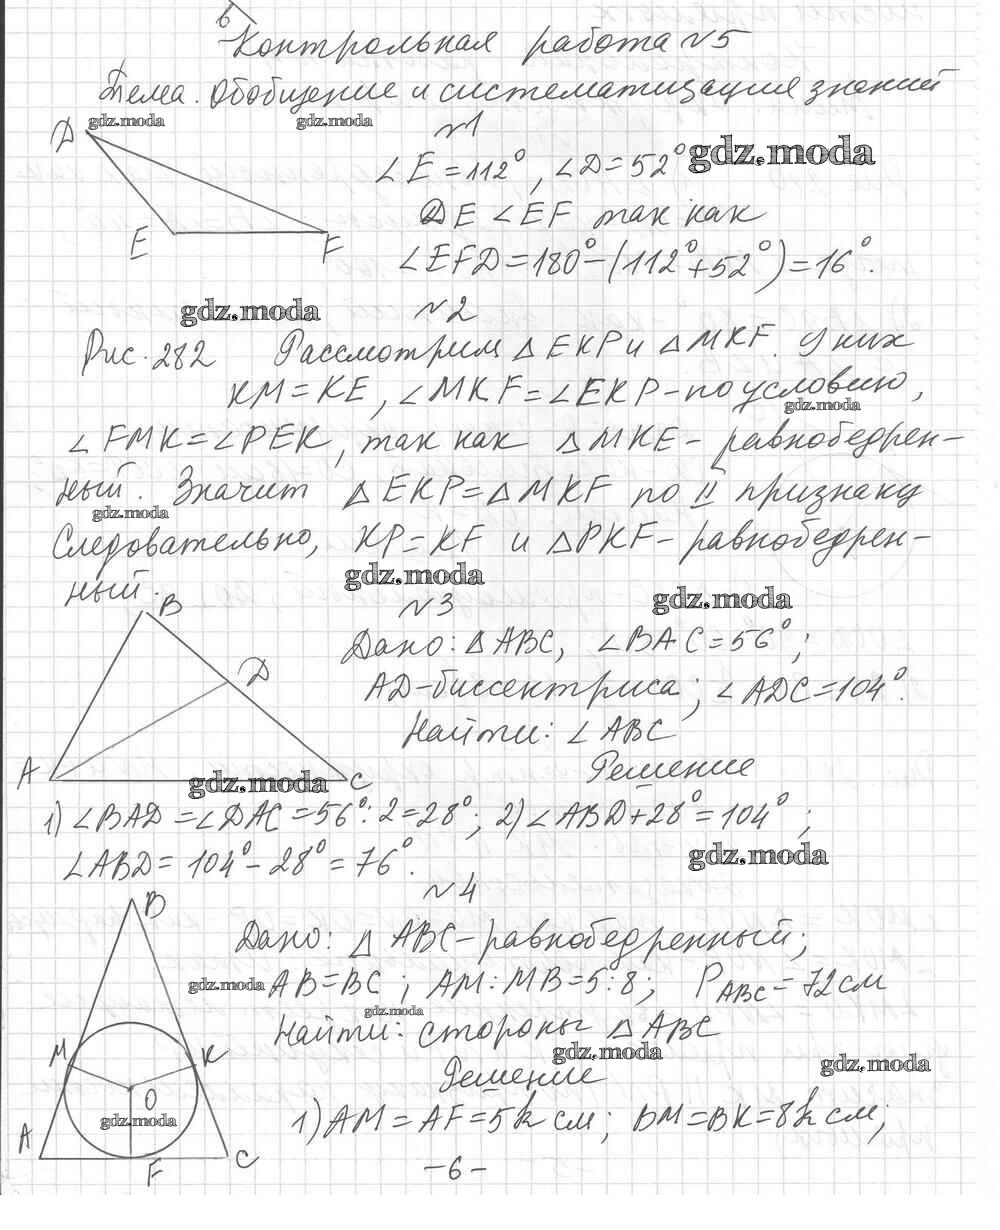 6
Контрольная работа №5
Тема. Обобщение и систематизация знаний
gdz.moda gdz.moda
D
№1
∠E = 112°, ∠D = 52° gdz.moda
DE ∠ EF так как
E F
∠EFD = 180° - (112° + 52°) = 16°.
gdz.moda №2
Рис. 282 Рассмотрим △ EKP и △ MKF. У них
KM = KE, ∠MKF = ∠EKP - по условию,
gdz.moda
∠FMK = ∠PEK, так как △ MKE - равнобедрен-
ный. Значит △ EKP = △ MKF по II признаку
gdz.moda
Следовательно, KP = KF и △PKF - равнобедрен-
gdz.moda
ный.
gdz.moda
B №3
Дано: △ ABC, ∠BAC = 56°;
D
AD - биссектриса; ∠ADC = 104°.
Найти: ∠ABC
A C
gdz.moda
Решение
1) ∠BAD = ∠DAC = 56° : 2 = 28°; 2) ∠ABD + 28° = 104°;
gdz.moda
∠ABD = 104° - 28° = 76°.
№4
B
Дано: △ ABC - равнобедренный;
gdz.moda
AB = BC; AM : MB = 5 : 8; PABC = 72 см
gdz.moda
Найти: стороны △ABC
gdz.moda gdz.moda
M K
Решение
O
gdz.moda
1) AM = AF = 5k см; BM = BK = 8k см;
A F C
- 6 -